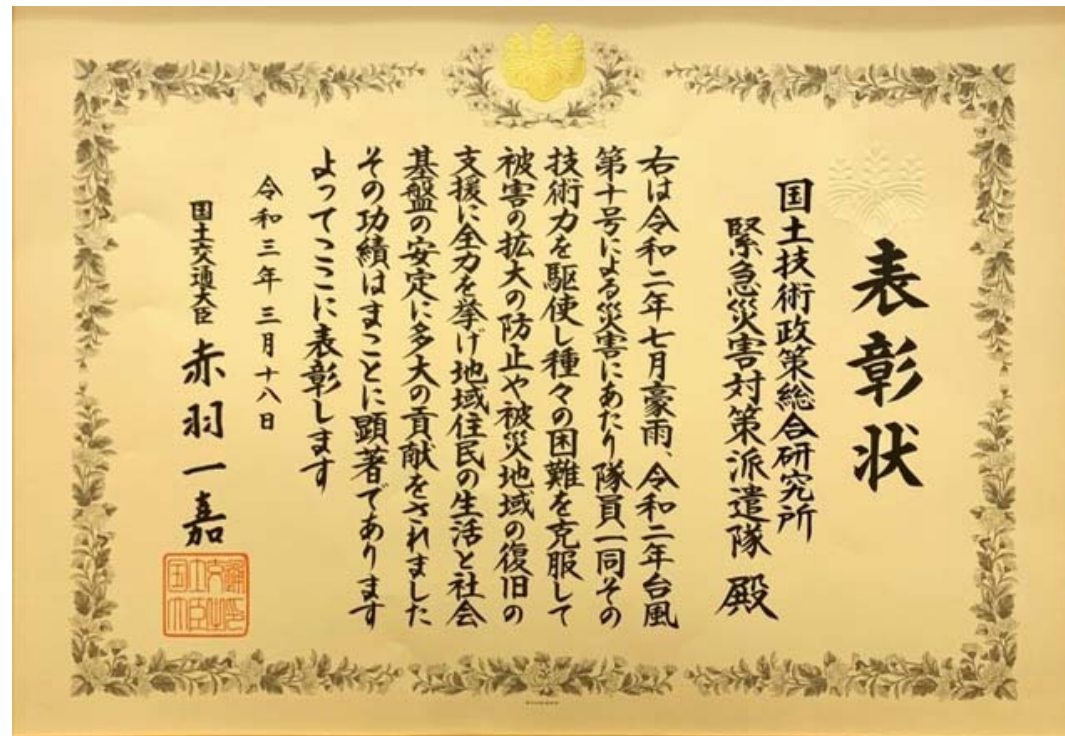 表彰状
国土技術政策総合研究所
緊急災害対策派遣隊 殿
右は令和二年七月豪雨、令和二年台風
第十号による災害にあたり隊員一同その
技術力を駆使し種々の困難を克服して
被害の拡大の防止や被災地域の復旧の
支援に全力を挙げ地域住民の生活と社会
基盤の安定に多大の貢献をされました
その功績はまことに顕著であります
よってここに表彰します
令和三年三月十八日
国土交通大臣 赤羽一嘉
国土交通大臣之印